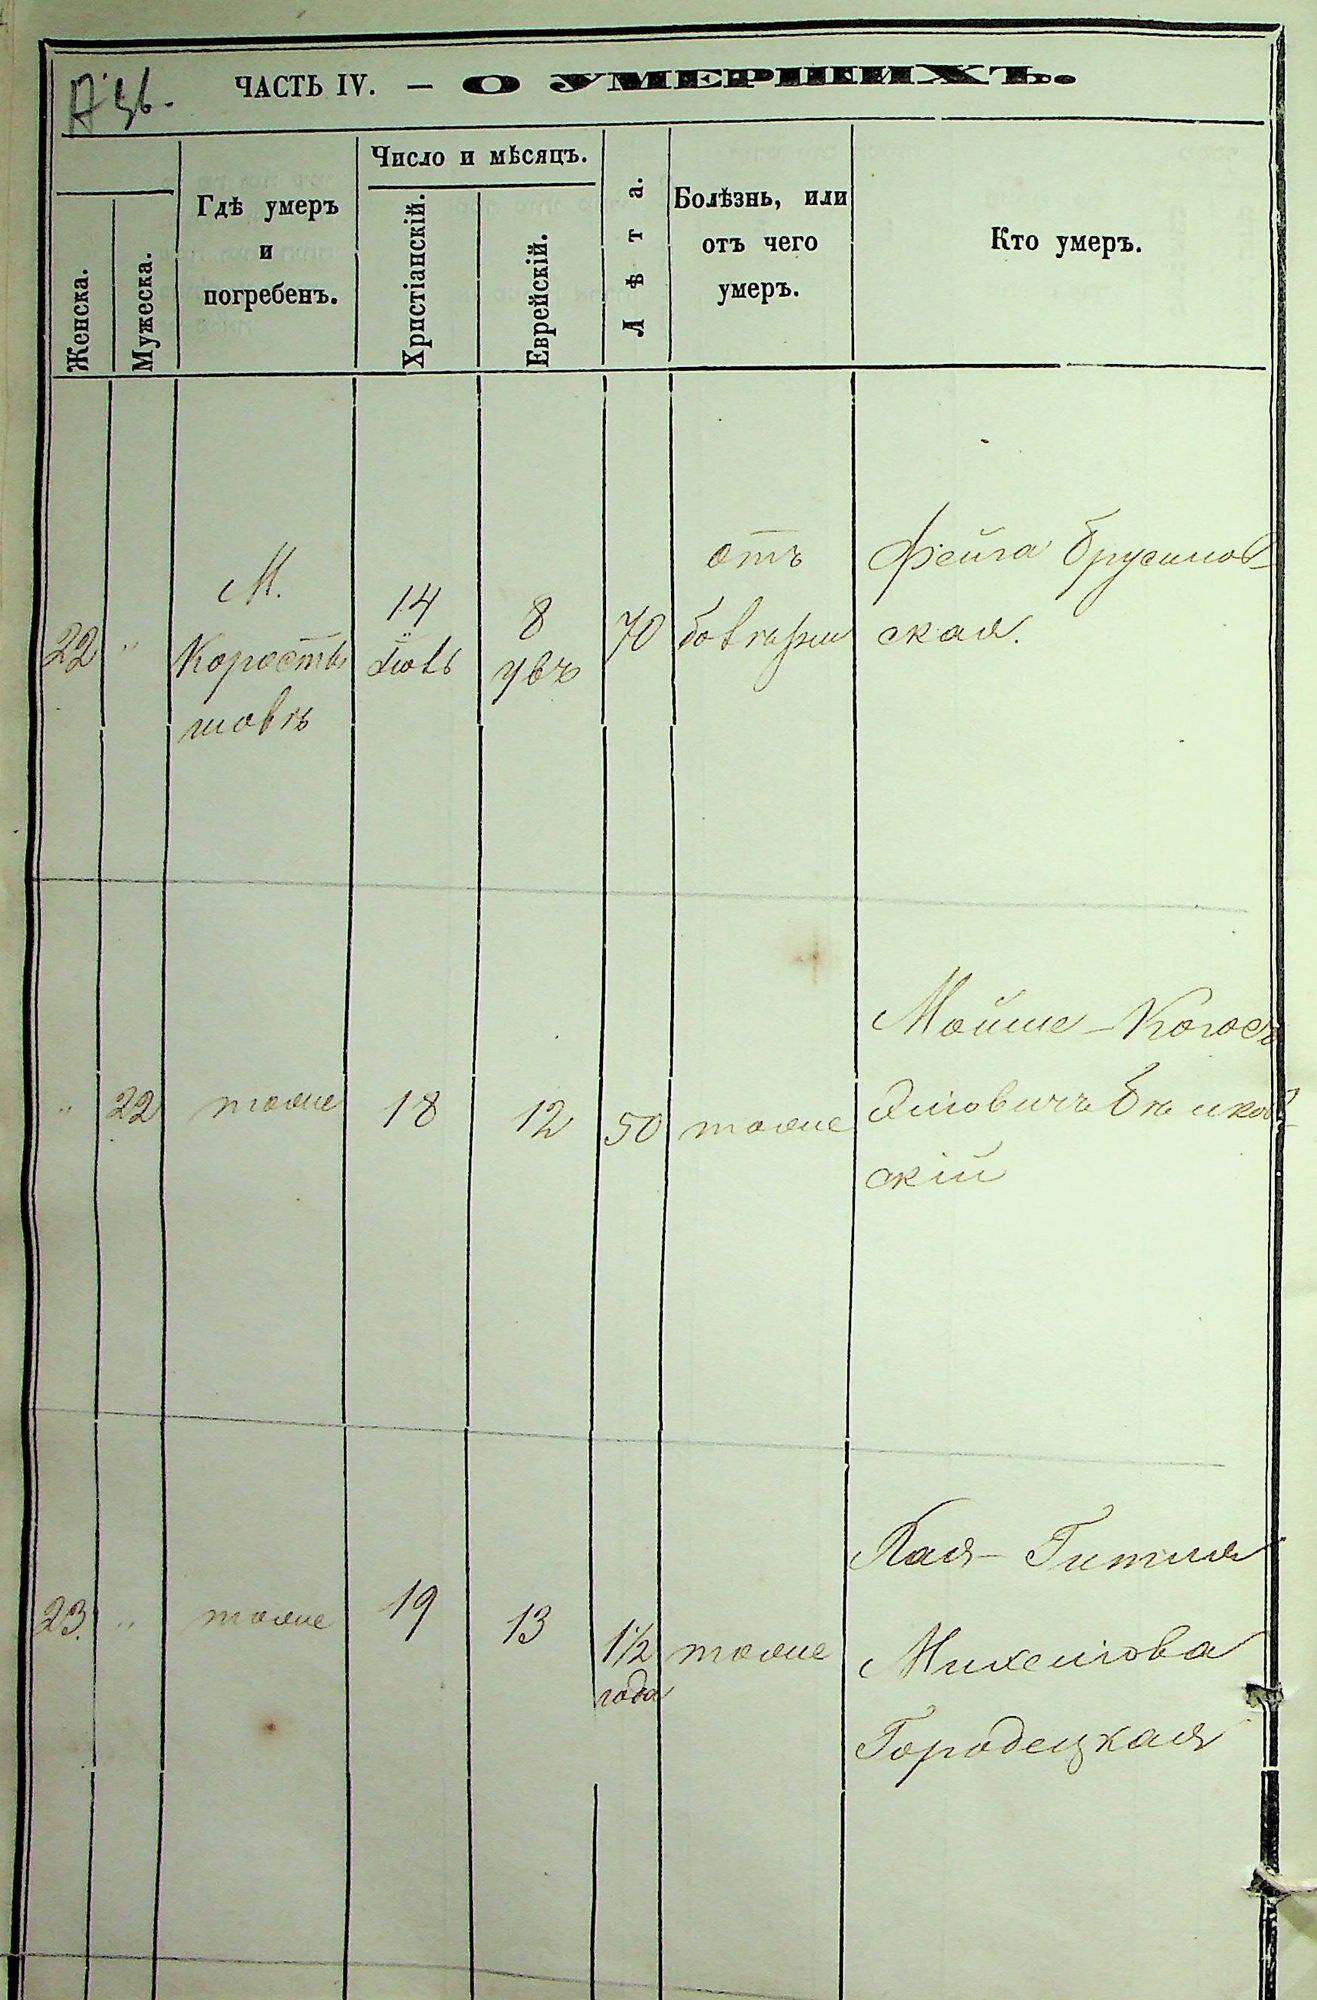 ЧАСТЬ IV. — О УМЕРШИХЪ.
Женска.
Мужеска.
Гдѣ умеръ
и
погребенъ.
Число и мѣсяцъ.
Христіанскій.
Еврейскій.
Лѣта.
Болѣзнь, или
отъ чего
умеръ.
Кто умеръ.
22
"
М.
Коросты
шовѣ
14
8
70
отъ
Фейга Брусилов-
ская.
"
22
тоже
18
12
50
тоже
Мойше-
скій
23.
"
тоже
19
13
1 1/2
года
тоже
Хая-Гитля
Михелова
Городецкая